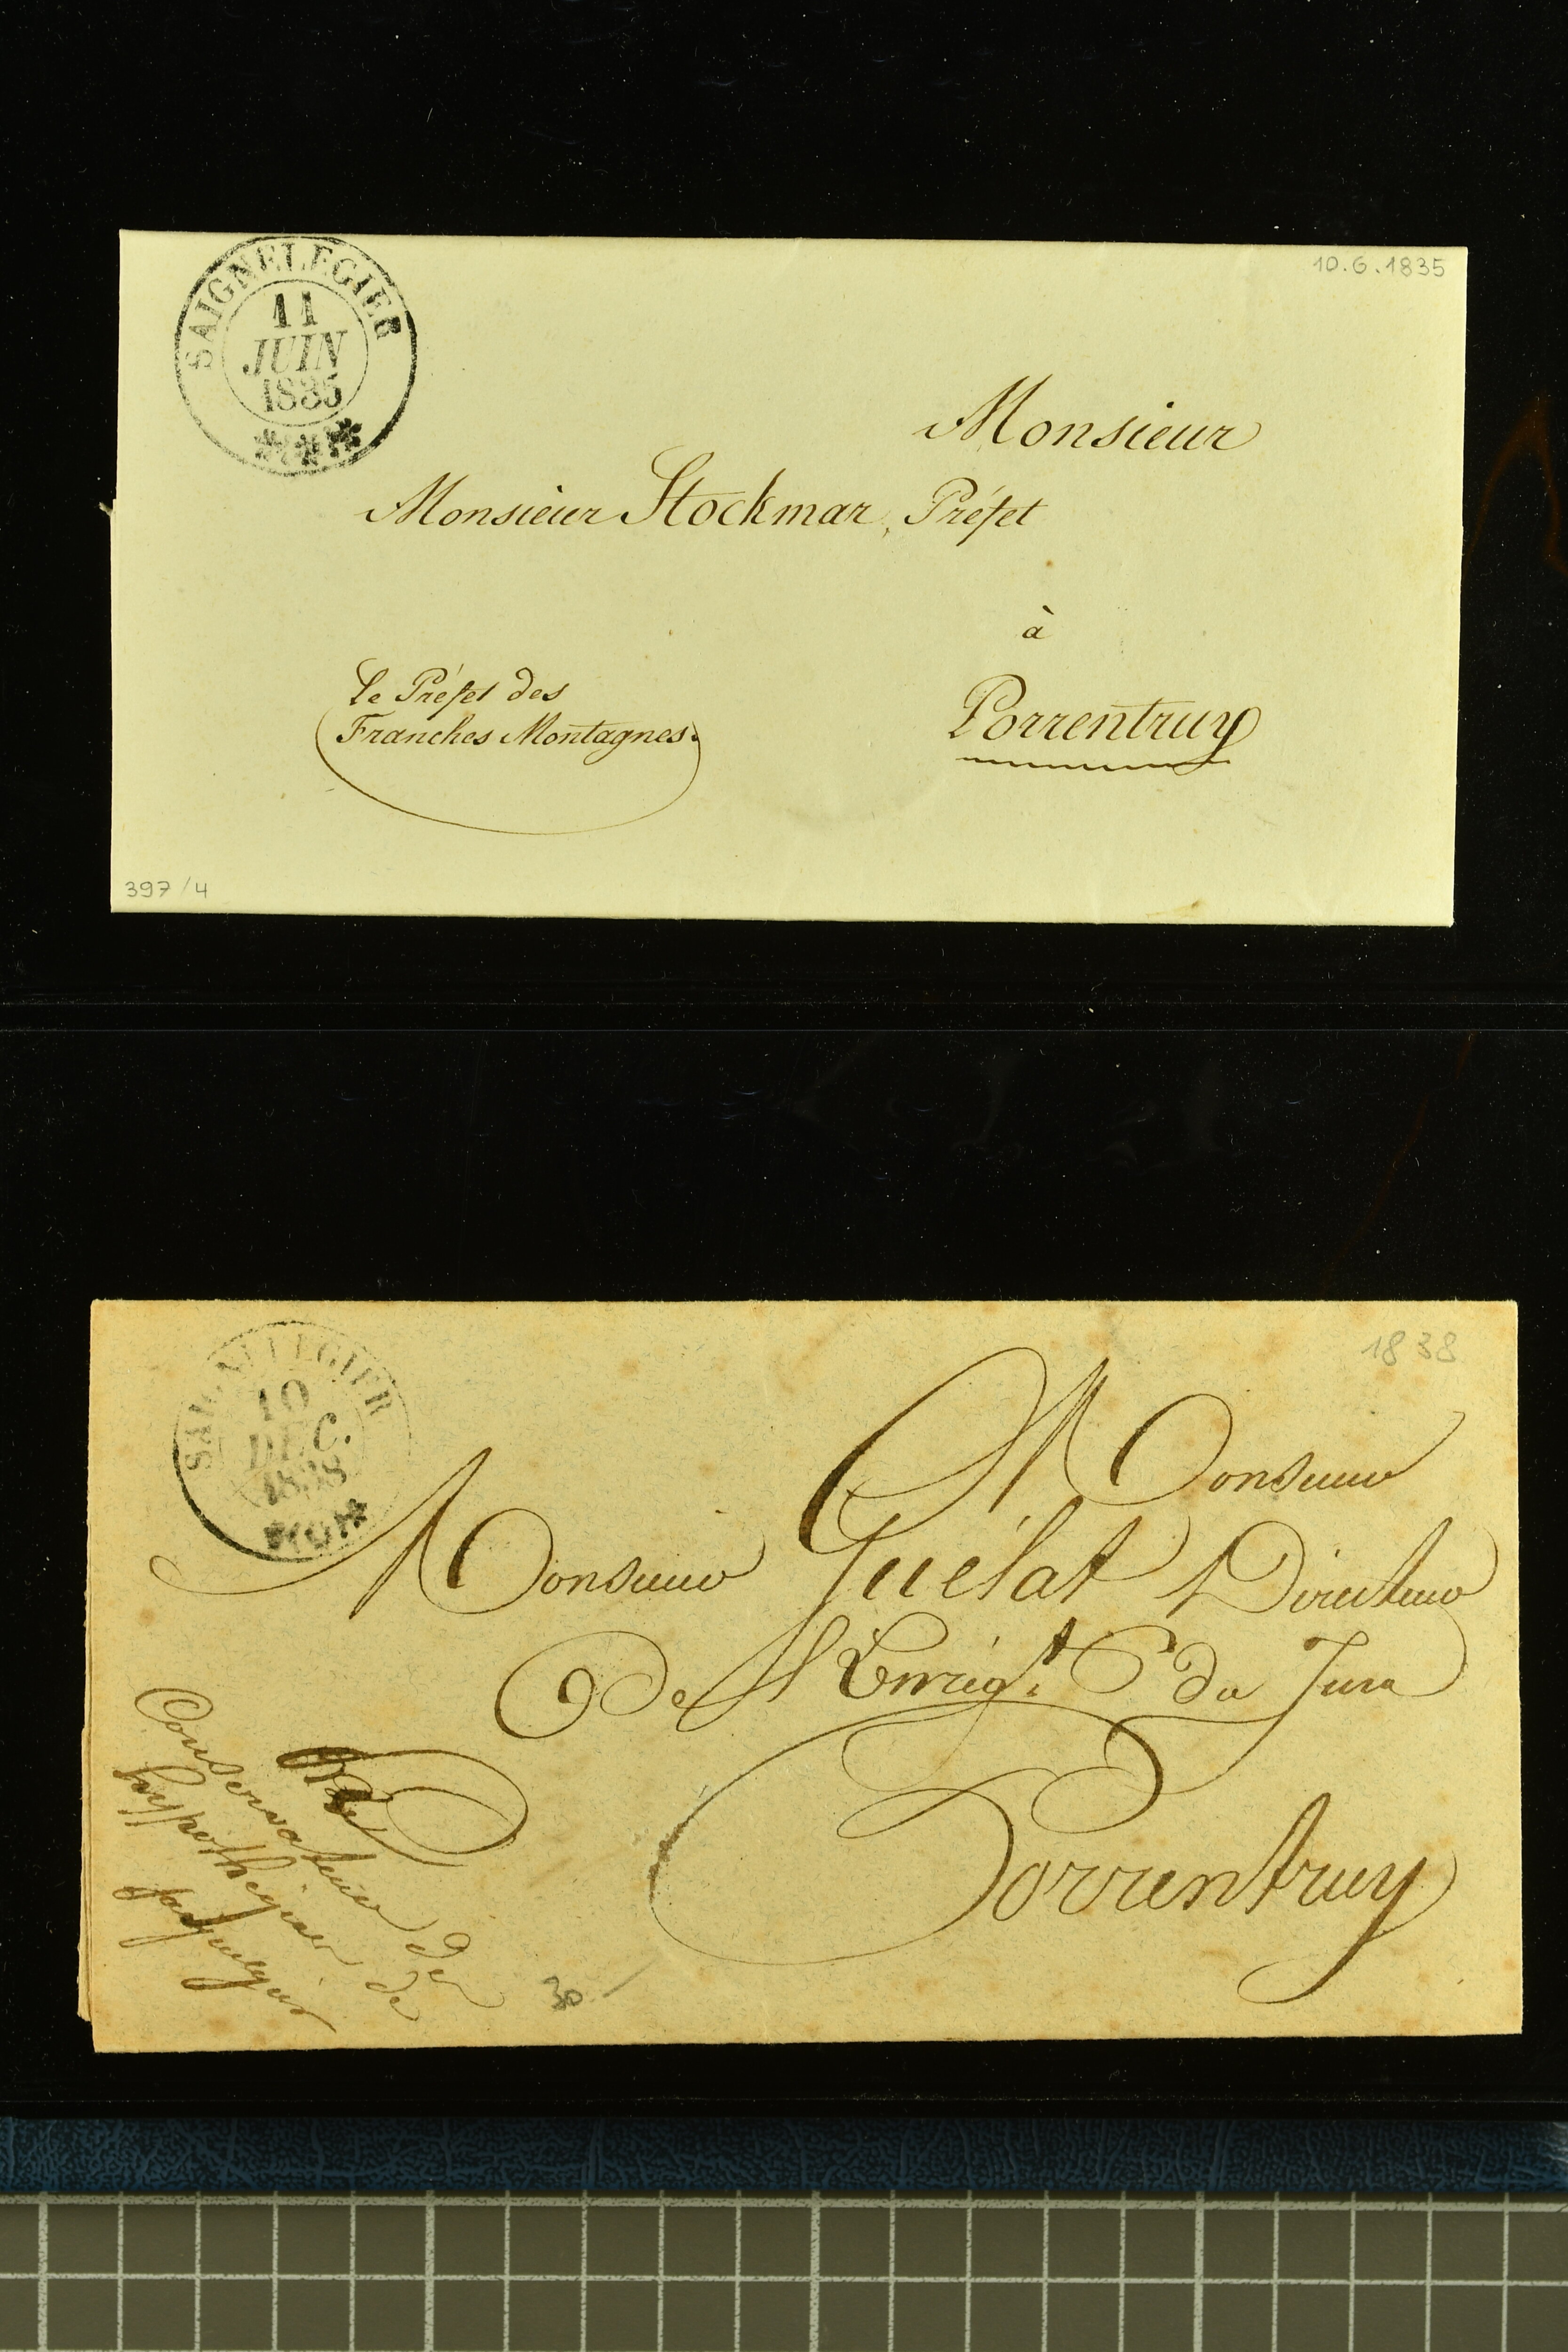 SAIGNELEGIER
11
JUIN
1835
***
10.6.1835
Monsieur
Monsieur Stockmar, Préfet
à
Porrentruy
Le Préfet des
Franches Montagnes.
397/4
SAIGNELEGIER
10
DEC.
1838
1838
Monsieur
Monsieur Guélat Directeur
De l'Enrégt du Jura
Porrentruy
Conservateur des
hypothèques de
Saignelegier
30